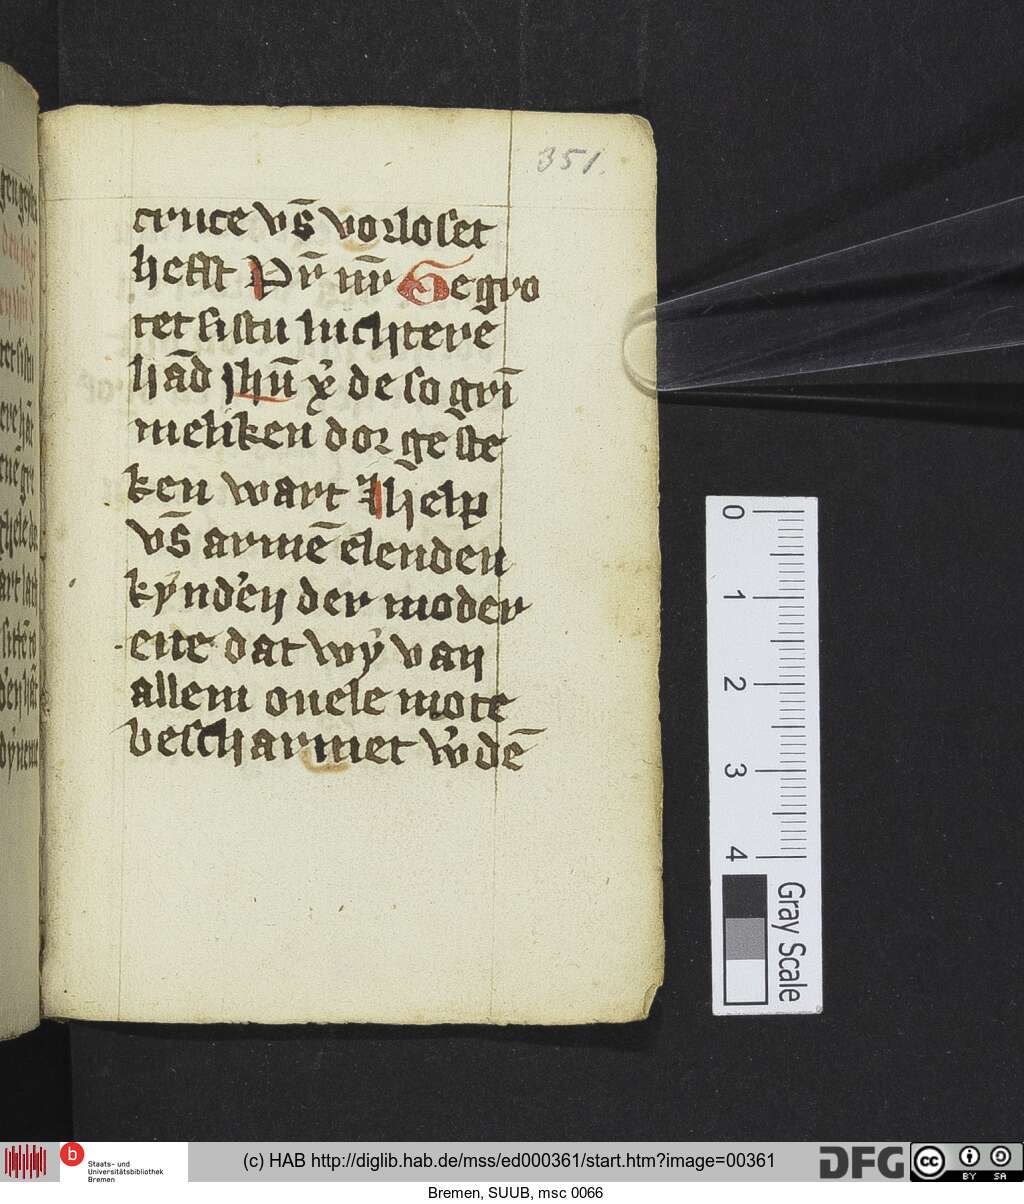 351.
cruce vs̄ vorloset
hefft Pr̄ nr̄ Gegro
tet sistu luchtere
hād ihū x̄ de so grī
meliken dor geste
ken wart Ihelp
vs̄ armē elenden
kÿnd'en der moder
eue dat wÿ van
allem ouele mote
bescharmet w'dē
0
1
2
3
4
Gray Scale
b
Staats- und
Universitätsbibliothek
Bremen
(c) HAB http://diglib.hab.de/mss/ed000361/start.htm?image=00361
DFG
cc
BY SA
Bremen, SUUB, msc 0066